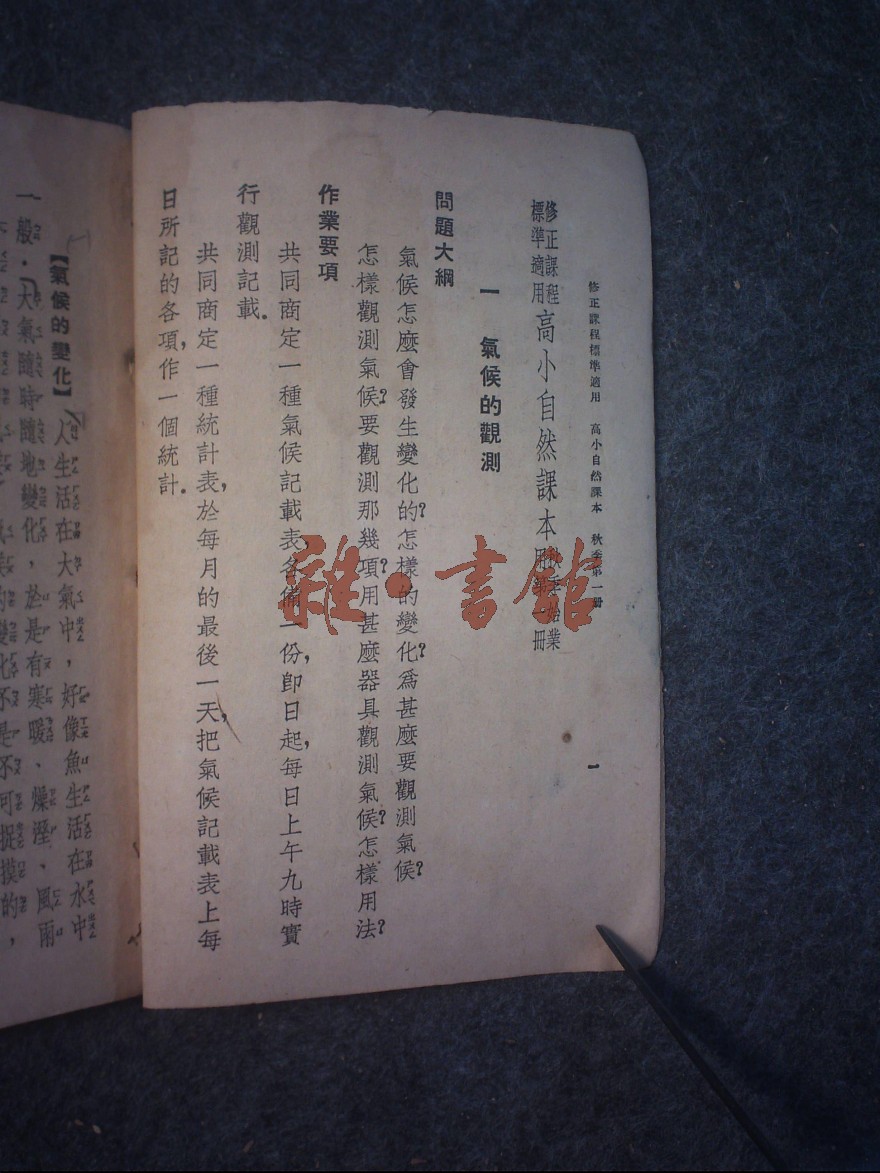 修正課程標準適用 高小自然課本 秋季第一册
一
修正課程標準適用 高小自然課本 秋季始業用第一册
一 氣候的觀測
問題大綱
氣候怎麼會發生變化的?怎樣的變化?爲甚麼要觀測氣候?
怎樣觀測氣候?要觀測那幾項?用甚麼器具觀測氣候?怎樣用法?
作業要項
共同商定一種氣候記載表,各備一份,卽日起,每日上午九時實
行觀測記載.
共同商定一種統計表,於每月的最後一天,把氣候記載表上每
日所記的各項,作一個統計.
【氣候的變化】 人生活在大氣中,好像魚生活在水中
一般.大氣隨時隨地變化,於是有寒暖、燥溼、風雨
變化不是不可捉摸的,
雜·書館